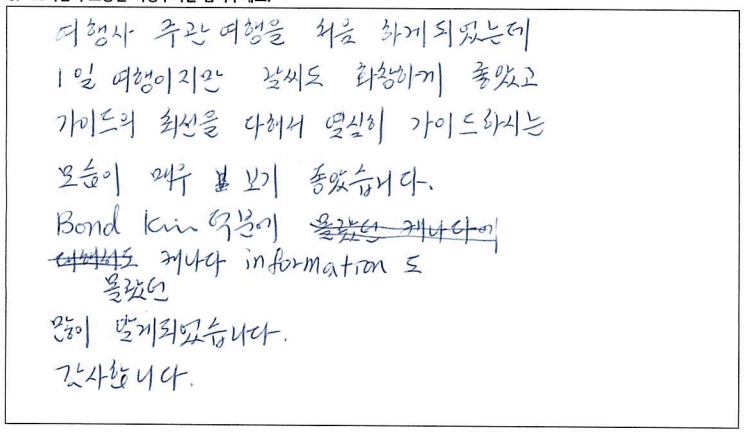 여행사 주관 여행을 처음 하게되었는데
1일 여행이지만 날씨도 화창하게 좋았고
가이드의 최선을 다해서 열심히 가이드하시는
모습이 매우 보기 좋았습니다.
Bond Kim 덕분에 몰랐던 캐나다에
대해서도 캐나다 information 도
몰랐던
많이 알게되었습니다.
감사합니다.